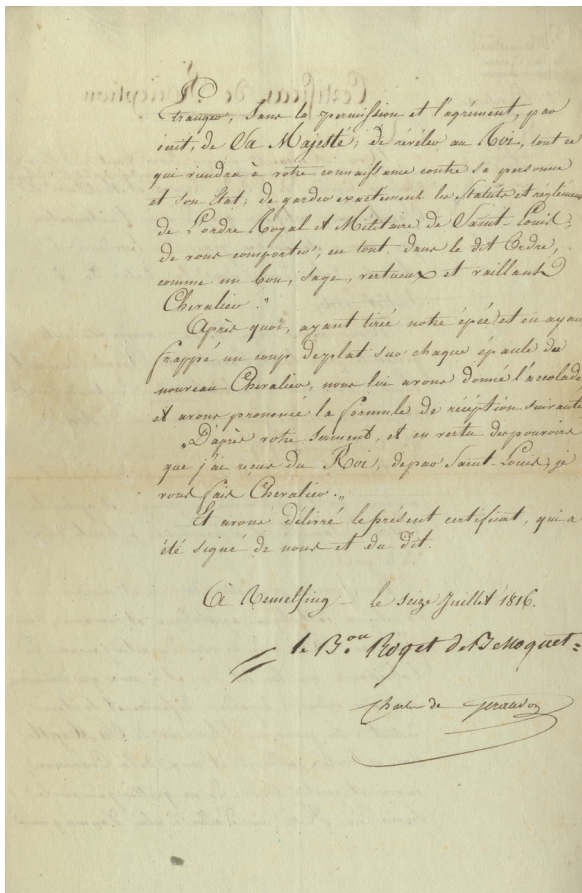 tranger, Sans la permission et l'agrément, par
écrit, de Sa Majesté; de révéler au Roi, tout ce
qui viendra à votre connaissance contre sa personne
et son Etat; de garder exactement les Statuts et réglemens
de l'ordre Royal et Militaire de Saint-Louis;
de vous comporter, en tout, dans le dit Ordre,
comme un bon, sage, vertueux et vaillant
Chevalier."
Après quoi, ayant tirée notre épée, et en ayant
frappé un coup de plat sur chaque épaule du
nouveau Chevalier, nous lui avons donné l'accolade
et avons prononcé la formule de réception suivante
"D'après votre serment, et en vertu des pouvoirs
que j'ai reçus du Roi, de par Saint-Louis, je
vous fais Chevalier."
Et avons délivré le présent certificat, qui a
été signé de nous et du dit.
à Remelfing le seize Juillet 1816.
le B.on Roget de Belloquet
Charles de